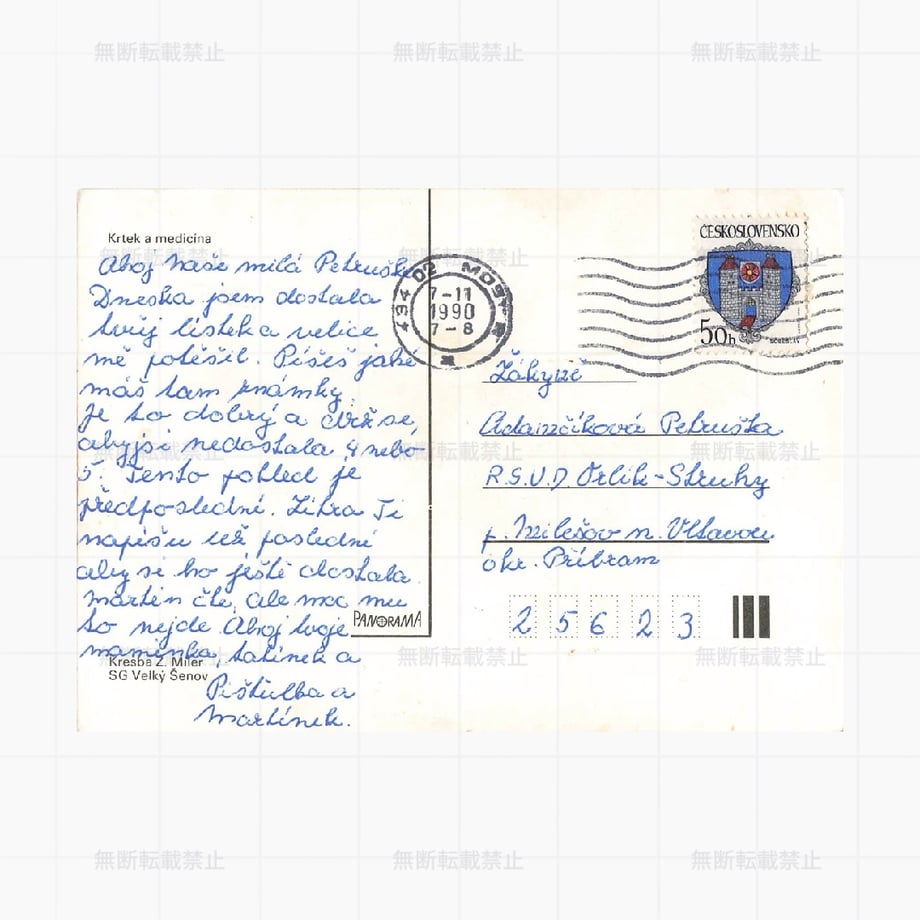 Krtek a medicina
Ahoj naše milá Petruško
Dneska jsem dostala
tvůj lístek a velice
mě potěšil. Píšeš jaké
máš tam známky.
Je to dobrý a drž se,
aby jsi nedostala 4 nebo
5. Tento pohled je
předposlední. Zítra Ti
napíšu už poslední
aby si ho ještě dostala.
Martin čte, ale moc mu
to nejde. Ahoj tvoje
maminka, tatínek a
Pišťulka a
Martínek.
Kresba Z. Miler
SG Velký Šenov
PANORAMA
434 02 MOST
7-11
1990
7-8
ČESKOSLOVENSKO
50h
Žákyně
Adamčíková Petruška
R.S.U.D. Orlík-Struhy
p. Milešov n. Vltavou
okr. Příbram
2 5 6 2 3
無断転載禁止 無断転載禁止 無断転載禁止
無断転載禁止 無断転載禁止 無断転載禁止
無断転載禁止 無断転載禁止 無断転載禁止
無断転載禁止 無断転載禁止 無断転載禁止
無断転載禁止 無断転載禁止 無断転載禁止